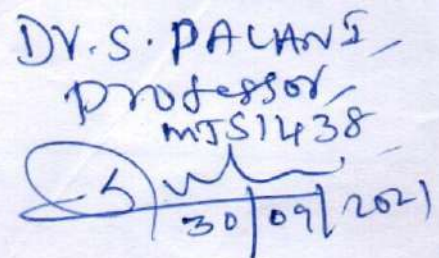 Dr. S. PALANI,
Professor,
MJS1438
30/09/2021